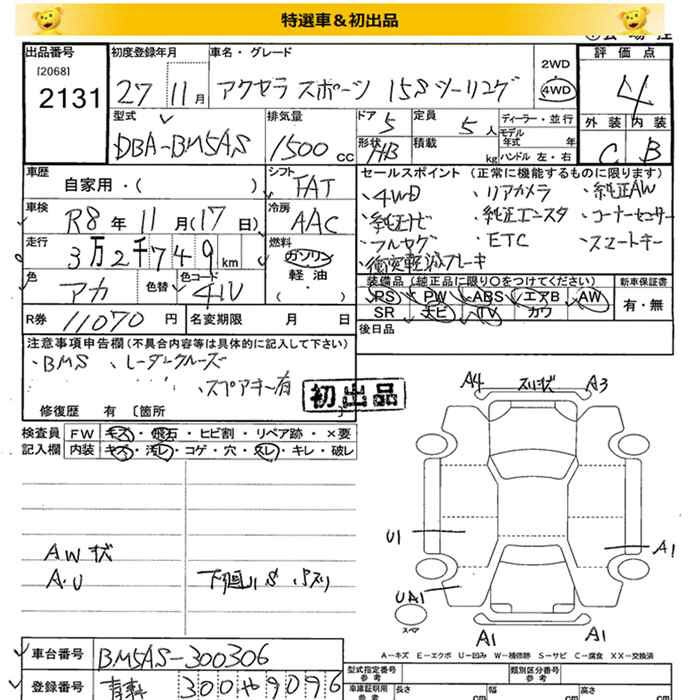 特選車＆初出品
出品番号 初度登録年月 車名・グレード 2WD 評価点
[2068] 2131 27 11月 アクセラ スポーツ 15S ツーリング 4WD 4
型式 排気量 ドア 定員 ディーラー・並行 外装 内装
DBA-BM5AS 1500 CC 5 5人 モデル年式 年
形状 HB 積載 kg ハンドル 左・右 C B
車歴 シフト セールスポイント (正常に機能するものに限ります)
自家用・( ) FAT ・4WD ・リアカメラ ・純正AW
車検 冷房 ・純正ナビ ・純正エンスタ ・コーナーセンサー
R8年11月(17日) AAC ・フルセグ ・ETC ・スマートキー
走行 燃料 ・衝突軽減ブレーキ
3万2千749km ガソリン
色 色替 色コード 軽油 装備品 (純正品に限り○をつけてください) 新車保証書
アカ 41V ( ・ ) PS PW ABS エアB AW 有・無
SR ナビ TV カワ
R券 11070円 名変期限 月 日 後日品
注意事項申告欄(不具合内容等は具体的に記入して下さい)
・BMS ・レーダークルーズ
・スペアキー有
初出品
修復歴 有 〔箇所 〕
検査員 FW キズ・飛石・ヒビ割・リペア跡・×要
記入欄 内装 キズ・汚レ・コゲ・穴・スレ・キレ・破レ
A4 スリキズ A3
U1 A1
AWキズ
A・U 下廻りS
UA1
スペア
A1 A1
A-キズ E-エクボ U-凹み W-補修跡 S-サビ C-腐食 XX-交換済
車台番号 BM5AS-300306
型式指定番号 参考 類別区分番号 参考
登録番号 300や9096
車庫証明用 参考 長さ cm 幅 cm 高さ cm